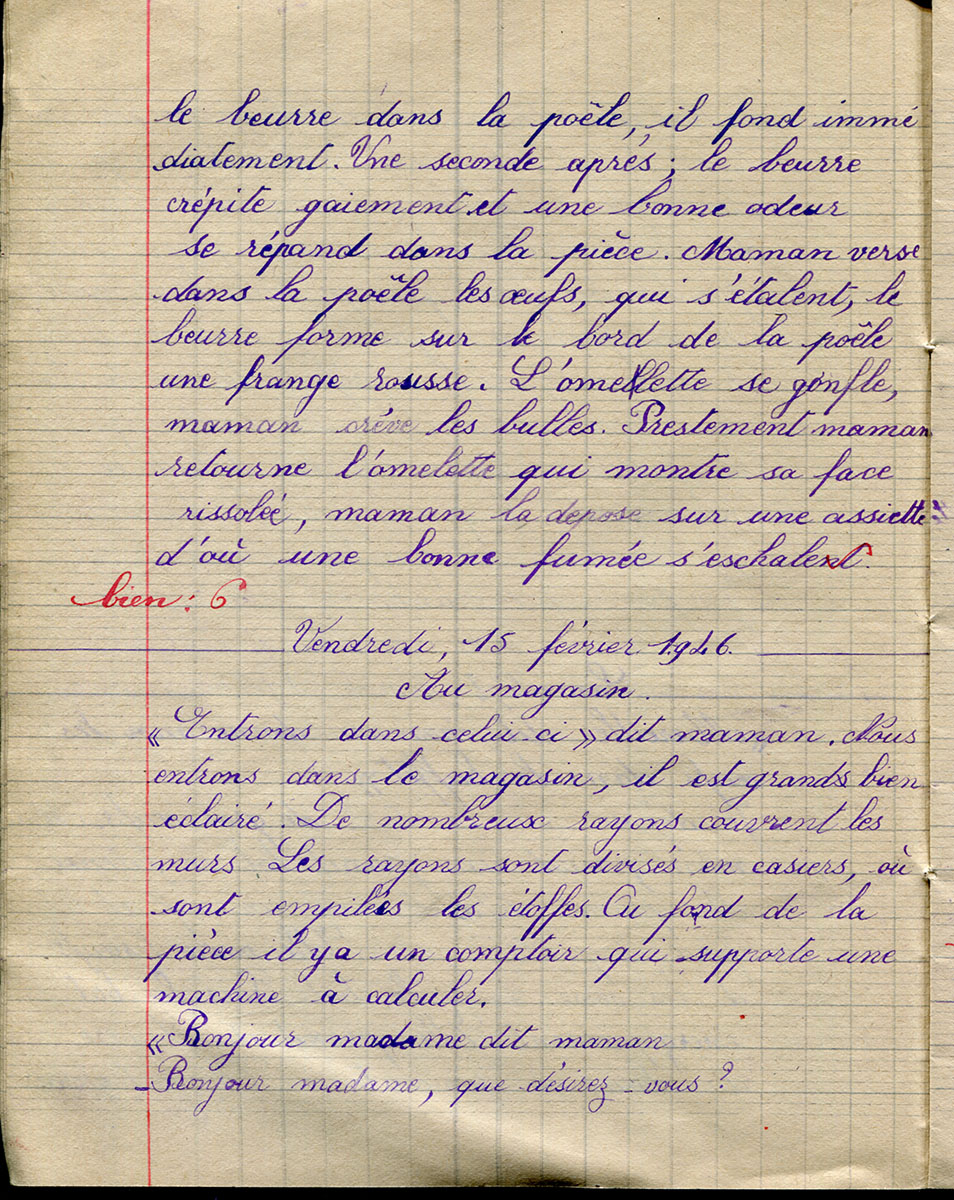 le beurre dans la poêle, il fond immé
diatement. Une seconde après ; le beurre
crépite gaiement et une bonne odeur
se répand dans la pièce. Maman verse
dans la poêle les œufs, qui s'étalent, le
beurre forme sur le bord de la poêle
une frange rousse. L'omellette se gonfle,
maman crève les bulles. Prestement maman
retourne l'omelette qui montre sa face
rissolée, maman la depose sur une assiette
d'où une bonne fumée s'eschalent.
bien : 6
Vendredi, 15 février 1946.
Au magasin.
« Entrons dans celui ci » dit maman. Nous
entrons dans le magasin, il est grands bien
éclairé. De nombreux rayons couvrent les
murs Les rayons sont divisés en casiers, où
sont empilées les étoffes. Au fond de la
pièce il y a un comptoir qui supporte une
machine à calculer.
« Bonjour madame dit maman
- Bonjour madame, que désirez-vous ?